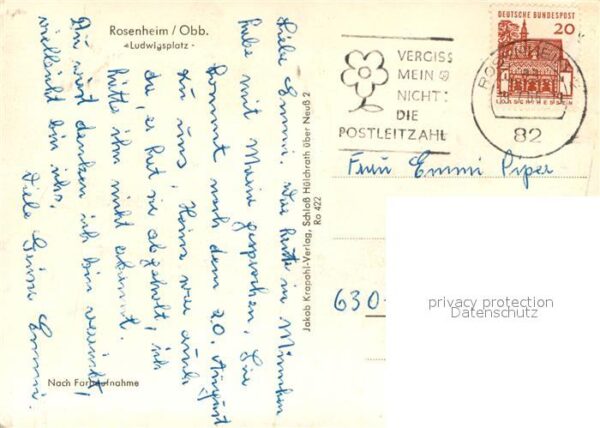 Rosenheim / Obb.
-Ludwigsplatz-
Liebe Emmi. Die heute in München
habe mit Maria gesprochen. Sie
kommt nach dem 20. August
zu uns, Hans war auch
da, er hat sie abgeholt, ich
hätte ihn nicht erkannt.
Du wirst denken ich bin verrückt,
vielleicht bin ichs.
Viele Emmi.
Nach Farbaufnahme
Jakob Krapohl-Verlag, Schloß Hülchrath über Neuß 2
Ro 422
VERGISS
MEIN
NICHT
DIE
POSTLEITZAHL
DEUTSCHE BUNDESPOST
20
LORSCH/HESSEN
ROSENHEIM
82
Frau Emmi Piper
630
privacy protection
Datenschutz